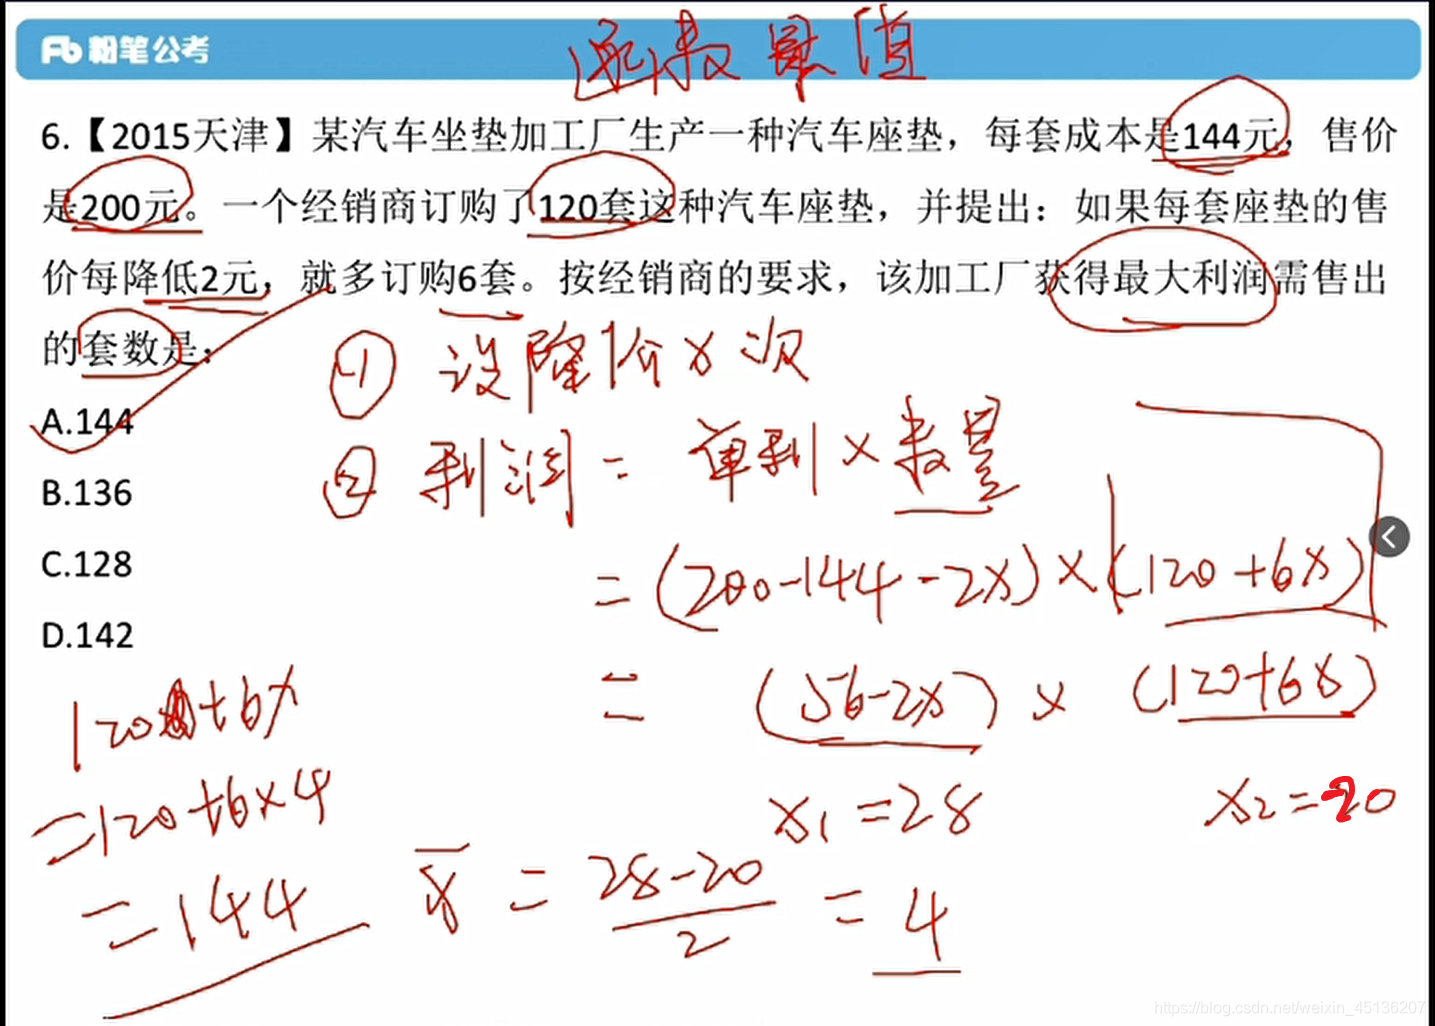 粉笔公考
函数最值
6.【2015天津】某汽车坐垫加工厂生产一种汽车座垫，每套成本是144元，售价
是200元。一个经销商订购了120套这种汽车座垫，并提出：如果每套座垫的售
价每降低2元，就多订购6套。按经销商的要求，该加工厂获得最大利润需售出
的套数是：
① 设降价x次
A.144
② 利润=单利×数量
B.136
C.128
=(200-144-2x)×(120+6x)
D.142
=(56-2x)×(120+6x)
120+6x
=120+6×4
x₁=28 x₂=-20
=144
x̄=(28-20)/2=4
https://blog.csdn.net/weixin_45136207